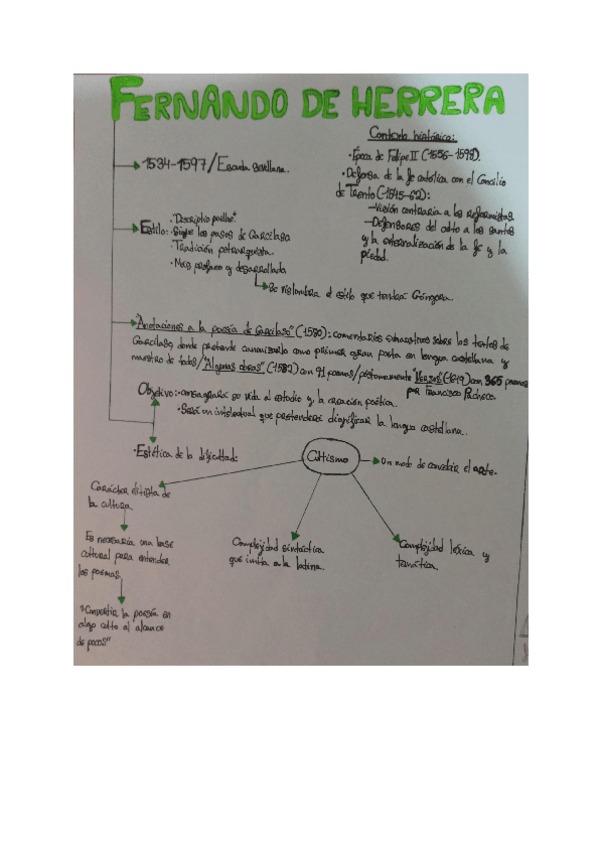 FERNANDO DE HERRERA
Contexto histórico:
·Época de Felipe II (1556-1598).
·Defensa de la fe católica con el Concilio
de Trento (1545-62):
-Visión contraria a los reformistas.
-Defensores del culto a los santos
y la externalización de la fe y la
piedad.
1534-1597/Escuela sevillana.
Estilo:
·"Descriptio puellae"
·Sigue los pasos de Garcilaso
·Tradición petrarquista.
·Más profano y desarrollada
Se vislumbra el estilo que tendrá Góngora.
"Anotaciones a la poesía de Garcilaso" (1580): comentarios exhaustivos sobre los textos de
Garcilaso, donde pretende canonizarlo como primer gran poeta en lengua castellana y
maestro de todos/"Algunas obras" (1582) con 91 poemas/póstumamente "Versos" (1619) con 365 poemas
por Francisco Pacheco.
Objetivo: -consagrará su vida al estudio y la creación poética.
·Será un intelectual que pretenderá dignificar la lengua castellana.
·Estética de la dificultad:
Cultismo
Un modo de concebir el arte.
Carácter elitista de
la cultura.
Es necesaria una base
cultural para entender
los poemas.
"Convertir la poesía en
algo culto al alcance
de pocos"
Complejidad sintáctica
que imita a la latina.
Complejidad léxica y
temática.